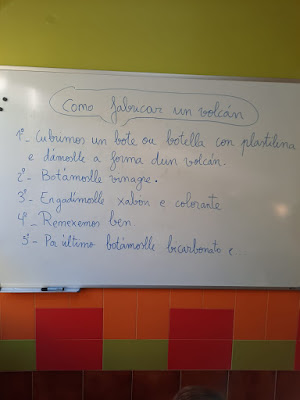 Como fabricar un volcán
1º- Cubrimos un bote ou botella con plastilina
e dámoslle a forma dun volcán.
2º- Botámoslle vinagre.
3º- Engadímoslle xabón e colorante
4º- Remexemos ben
5º- Por último botámoslle bicarbonato e